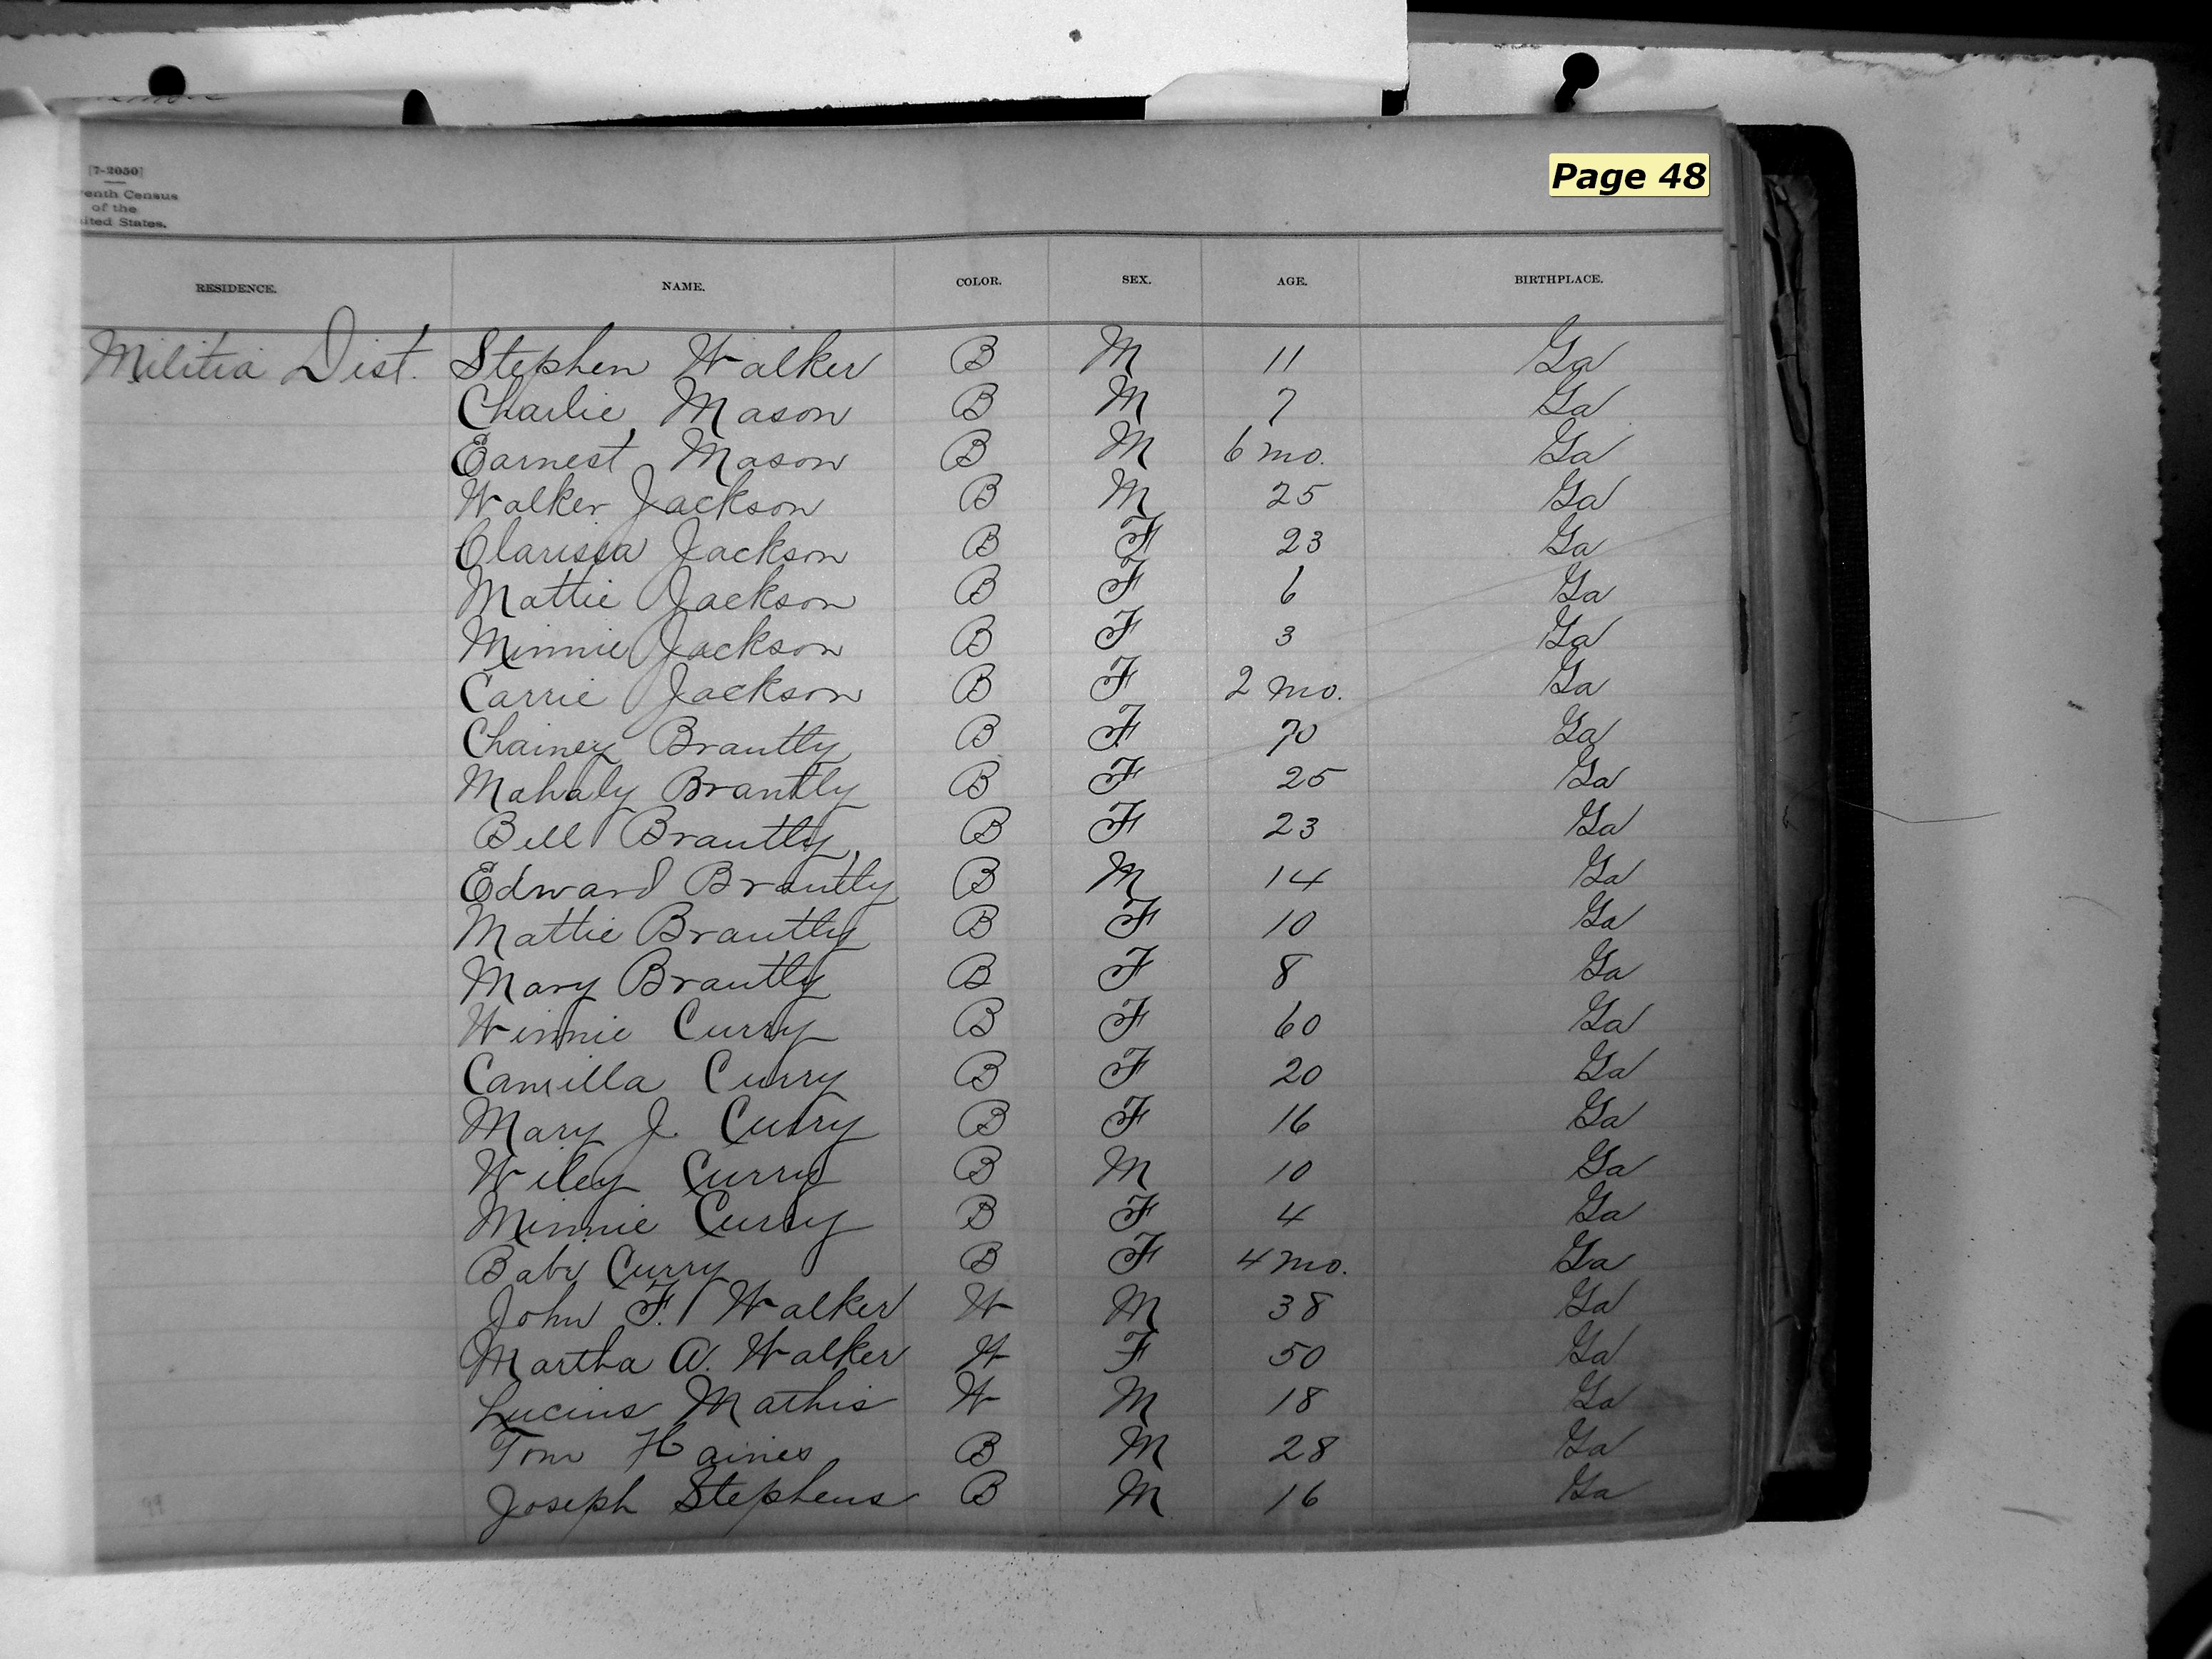 [7-2050]
enth Census
of the
ited States.
Page 48
RESIDENCE. NAME. COLOR. SEX. AGE. BIRTHPLACE.
Militia Dist. Stephen Walker B M 11 Ga
Charlie Mason B M 7 Ga
Earnest Mason B M 6 mo. Ga
Walker Jackson B M 25 Ga
Clarissa Jackson B F 23 Ga
Mattie Jackson B F 6 Ga
Minnie Jackson B F 3 Ga
Carrie Jackson B F 2 mo. Ga
Chainey Brantly B F 70 Ga
Mahaly Brantly B F 25 Ga
Bell Brantly B F 23 Ga
Edward Brantly B M 14 Ga
Mattie Brantly B F 10 Ga
Mary Brantly B F 8 Ga
Winnie Curry B F 60 Ga
Camilla Curry B F 20 Ga
Mary J. Curry B F 16 Ga
Wiley Curry B M 10 Ga
Minnie Curry B F 4 Ga
Babe Curry B F 4 mo. Ga
John F. Walker W M 38 Ga
Martha A. Walker W F 50 Ga
Lucius Mathis W M 18 Ga
Tom Haines B M 28 Ga
Joseph Stephens B M 16 Ga